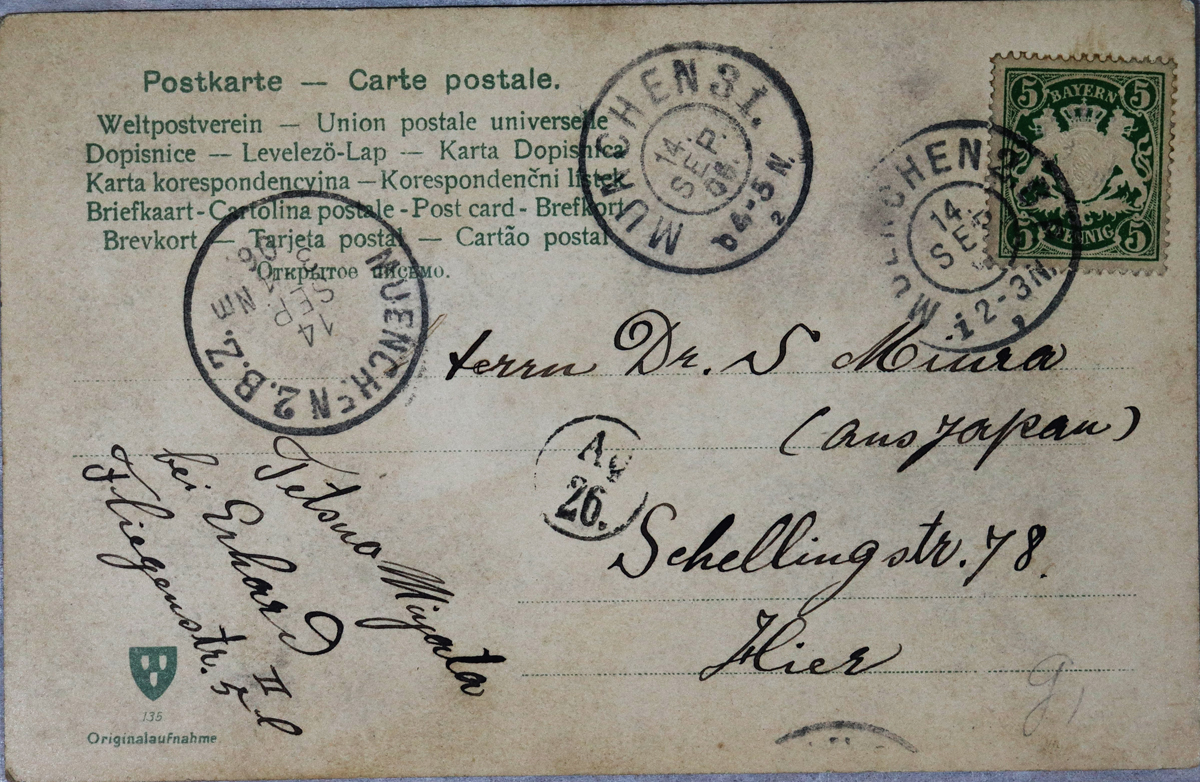 Postkarte — Carte postale.
Weltpostverein — Union postale universelle
Dopisnice — Levelező-Lap — Karta Dopisnica
Karta korespondencyjna — Korespondenčni listek
Briefkaart - Cartolina postale - Post card - Brefkort
Brevkort — Tarjeta postal — Cartão postal
Открытое письмо.
MUNCHEN 31.
14.
SEP.
06.
4-5 N.
2
5 BAYERN 5
5 PFENNIG 5
MUENCHEN 2
14.
SEP
12-3N.
MUENCHEN 2.B.Z.
14
SEP.
06
Herrn Dr. S Miura
(aus Japan)
Schellingstr. 78.
Hier
26.
Tetsuo Miyata
bei Erhard II l
Fliegenstr. 5
135
Originalaufnahme